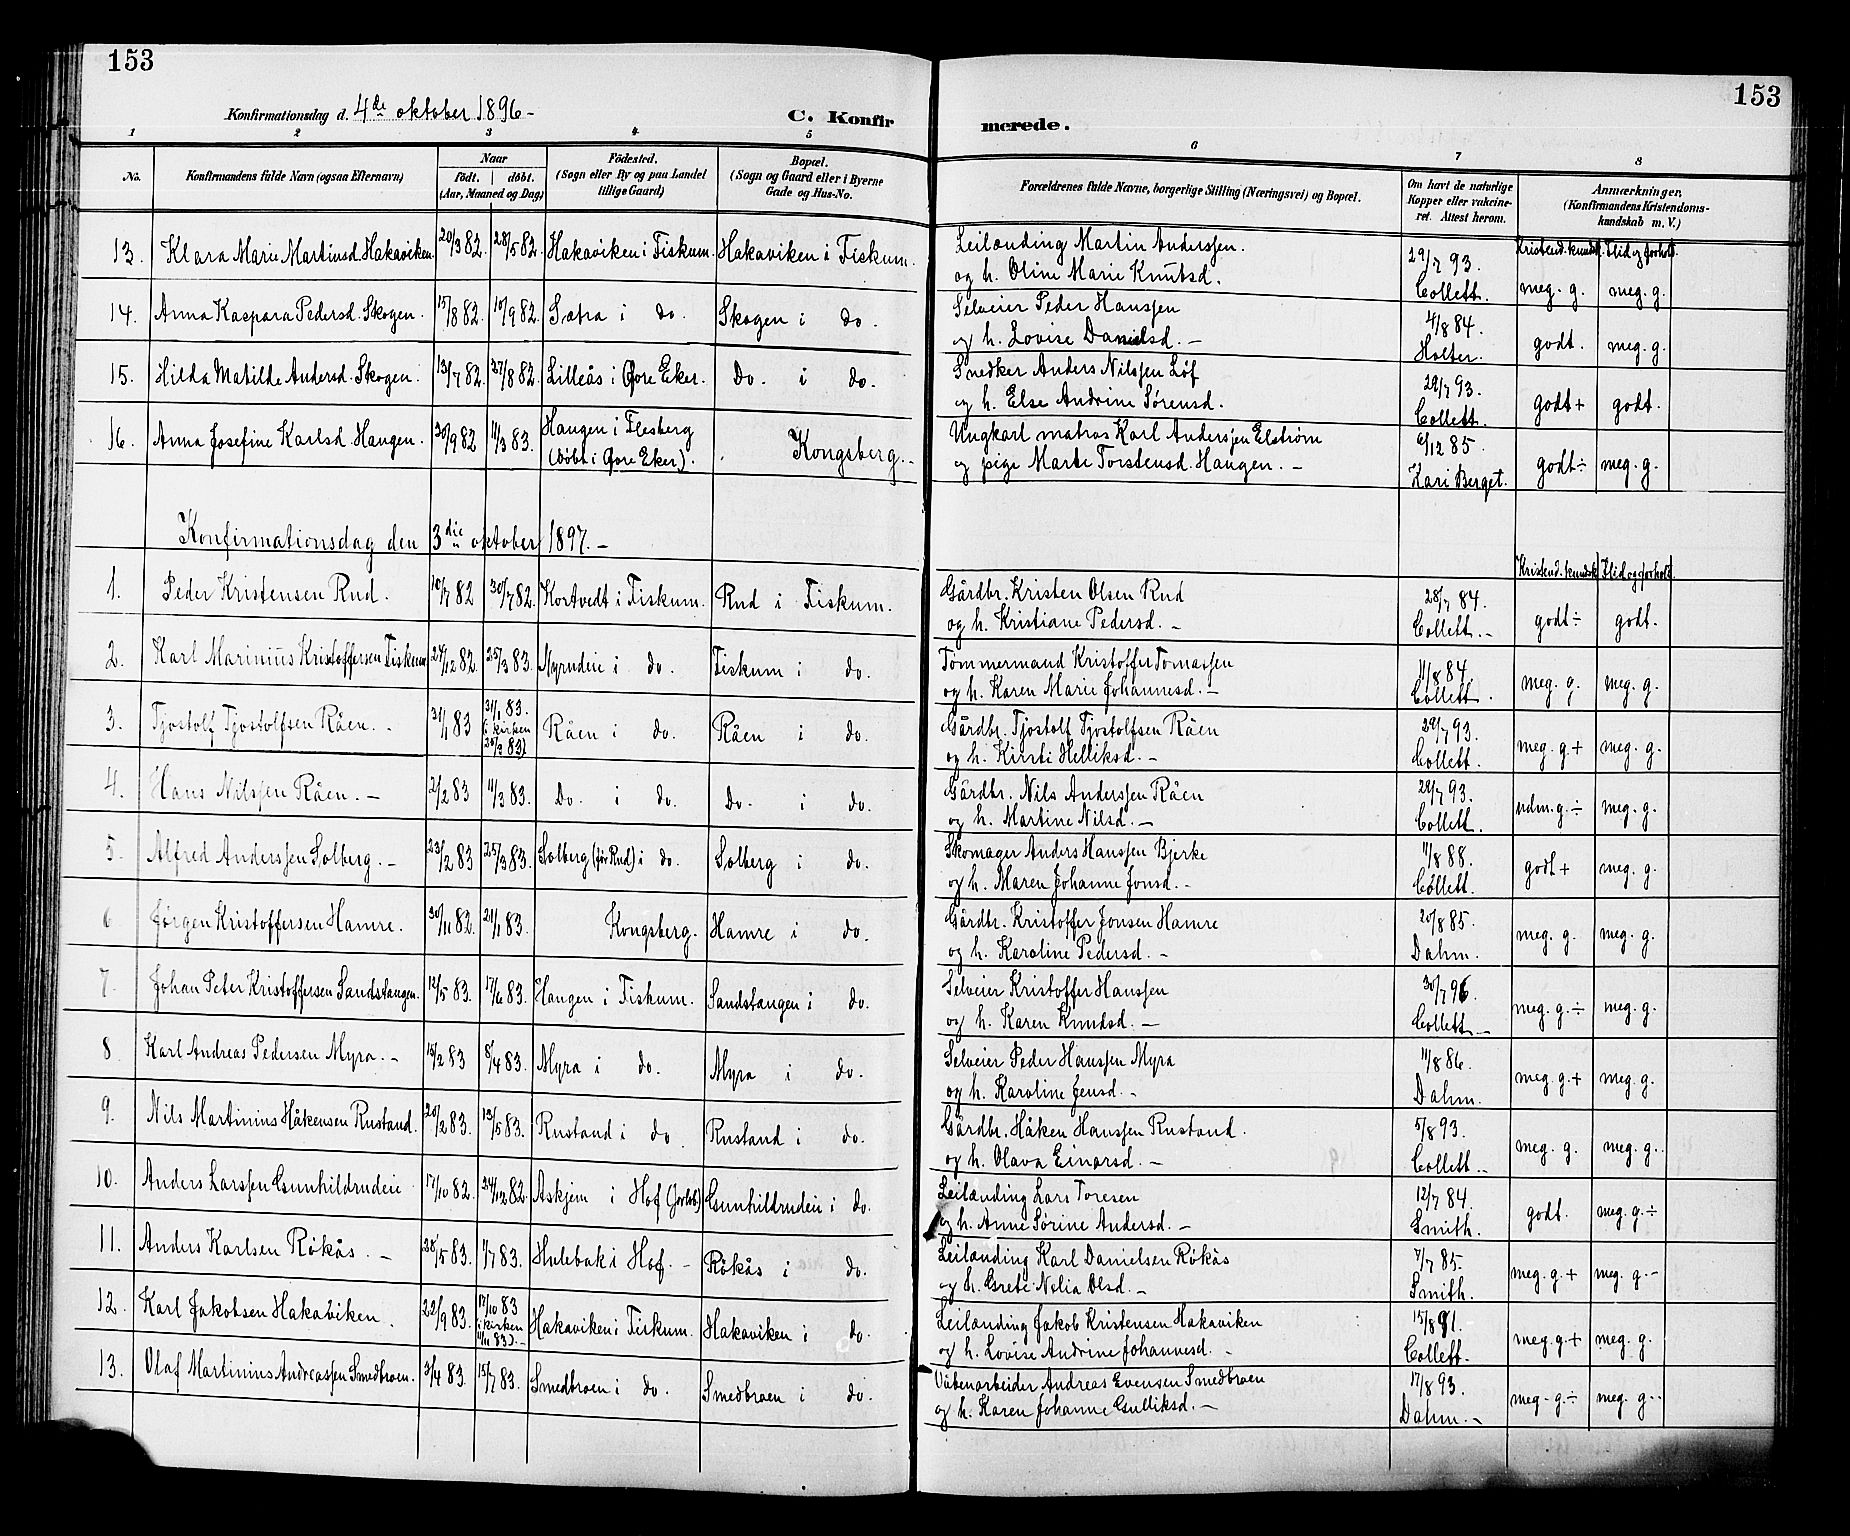 153
153
Konfirmationsdag d. 4de oktober 1896 -
C. Konfirmerede.
1 2 3 4 5 6 7 8
No.
Konfirmandens fulde Navn (ogsaa Efternavn)
Naar
Födt. | döbt.
(Aar, Maaned og Dag)
Födested.
(Sogn eller By og paa Landet
tillige Gaard)
Bopæl.
(Sogn og Gaard eller i Byerne
Gade og Hus-No.
Forældrenes fulde Navne, borgerlige Stilling (Næringsvei) og Bopæl.
Om havt de naturlige
Kopper eller vakcine-
ret. Attest herom.
Anmærkninger,
(Konfirmandens Kristendoms-
kundskab m. V.)
Kristend. kundsk. Flid og forhold.
13. Klara Marie Martinsd. Hakaviken 20/3 82. 28/5 82. Hakaviken i Fiskum. Hakaviken i Fiskum. Leilænding Martin Anderssen. 29/7 93. meg. g. meg. g.
og h. Oline Marie Knutsd. Collett.
14. Anna Kaspara Pedersd. Skogen. 15/8 82. 10/9 82. Sætra i do. Skogen i do. Selveier Peder Hanssen 4/8 84. godt. meg. g.
og h. Lovise Danielsd. - Holter.
15. Hilda Matilde Andersd. Skogen. 13/7 82. 27/8 82. Lilleås i Øvre Eker. Do. i do. Snedker Anders Nilssen Løf 29/7 93. godt + godt.
og h. Else Andrine Sørensd. Collett.
16. Anna Josefine Karlsd. Haugen. 30/9 82 11/3 83. Haugen i Flesberg Kongsberg. Ungkarl matros Karl Anderssen Elstrøm 6/12 85. godt ÷ meg. g.
(Døbt i Øvre Eker). og pige Marte Torstensd. Haugen. - Kari Berget.
Konfirmationsdag den 3die oktober 1897. -
Kristend. kundsk. Flid og forhold.
1. Peder Kristensen Rud. 10/7 82 30/7 82. Kortvedt i Fiskum. Rud i Fiskum. Gårdbr. Kristen Olsen Rud 28/7 84. godt ÷ godt.
og h. Kristiane Pedersd. - Collett. -
2. Karl Marinius Kristoffersen Fiskum 27/12 82. 25/3 83. Myrudeie i do. Fiskum i do. Tømmermand Kristoffer Tomassen 11/8 84. meg. g. meg. g.
og h. Karen Marie Johannesd. - Collett.
3. Tjostolf Tjostolfsen Råen. - 31/1 83 31/1 83. Råen i do. Råen i do. Gårdbr. Tjostolf Tjostolfsen Råen 29/7 93. meg. g + meg. g.
(i kirken og h. Kirsti Helliksd. - Collett.
4. Hans Nilssen Råen. - 2/2 83 11/3 83. Do. i do. Do. i do. Gårdbr. Nils Anderssen Råen 29/7 93. udm. g. ÷ meg. g.
og h. Martine Nilsd. - Collett.
5. Alfred Anderssen Solberg. - 23/2 83 25/3 83. Solberg (før Rud) i do. Solberg i do. Skomager Anders Hanssen Bjerke 11/8 88. godt + meg. g.
og h. Maren Johanne Jonsd. - Collett.
6 Jørgen Kristoffersen Hamre. 30/11 82. 21/1 83. Kongsberg. Hamre i do. Gårdbr. Kristoffer Jonsen Hamre 20/8 85. meg. g. meg. g.
og h. Karoline Pedersd. - Dahm.
7. Johan Peter Kristoffersen Sandstangen. 12/5 83. 17/6 83. Haugen i Fiskum. Sandstangen i do. Selveier Kristoffer Hanssen 30/7 96. meg. g. ÷ meg. g.
og h. Karen Knudsd. - Collett -
8. Karl Andreas Pedersen Myra. - 15/2 83 8/4 83. Myra i do. Myra i do. Selveier Peder Hanssen Myra 11/8 86. meg. g. + meg. g.
og h. Karoline Jensd. - Dahm.
9. Nils Martinius Håkensen Rustand. 20/2 83. 13/5 83. Rustand i do. Rustand i do. Gårdbr. Håken Hanssen Rustand. 5/8 93. meg. g. meg. g. -
og h. Olava Einarsd. - Collett. -
10. Anders Larssen Gunhildrudeie 17/10 82. 24/12 82. Askjem i Hof (Jarlsb.) Gunhildrudeie i do. Leilænding Lars Toresen 12/7 84. godt. meg. g. ÷
og h. Anne Sørine Andersd. - Smith.
11. Anders Karlsen Røkås. - 28/5 83. 1/7 83. Hulebak i Hof. - Røkås i do. Leilænding Karl Danielsen Røkås 7/7 85. meg. g. + meg. g. -
og h. Grete Nelia Olsd. - Smith.
12. Karl Jakobsen Hakaviken. 22/9 83. 17/10 83 Hakaviken i Fiskum. Hakaviken i do. Leilænding Jakob Kristensen Hakaviken 15/8 91. meg. g. + meg. g.
(i kirken og h. Lovise Andrine Johannesd. - Collett.
11/11 83). -
13. Olaf Martinius Andreassen Smedbroen. 3/4 83. 15/7 83. Smedbroen i do. Smedbroen i do. Våbenarbeider Andreas Evensen Smedbroen 17/8 93. meg - g. ÷ meg. g. -
og h. Karen Johanne Gulliksd. - Dahm. -